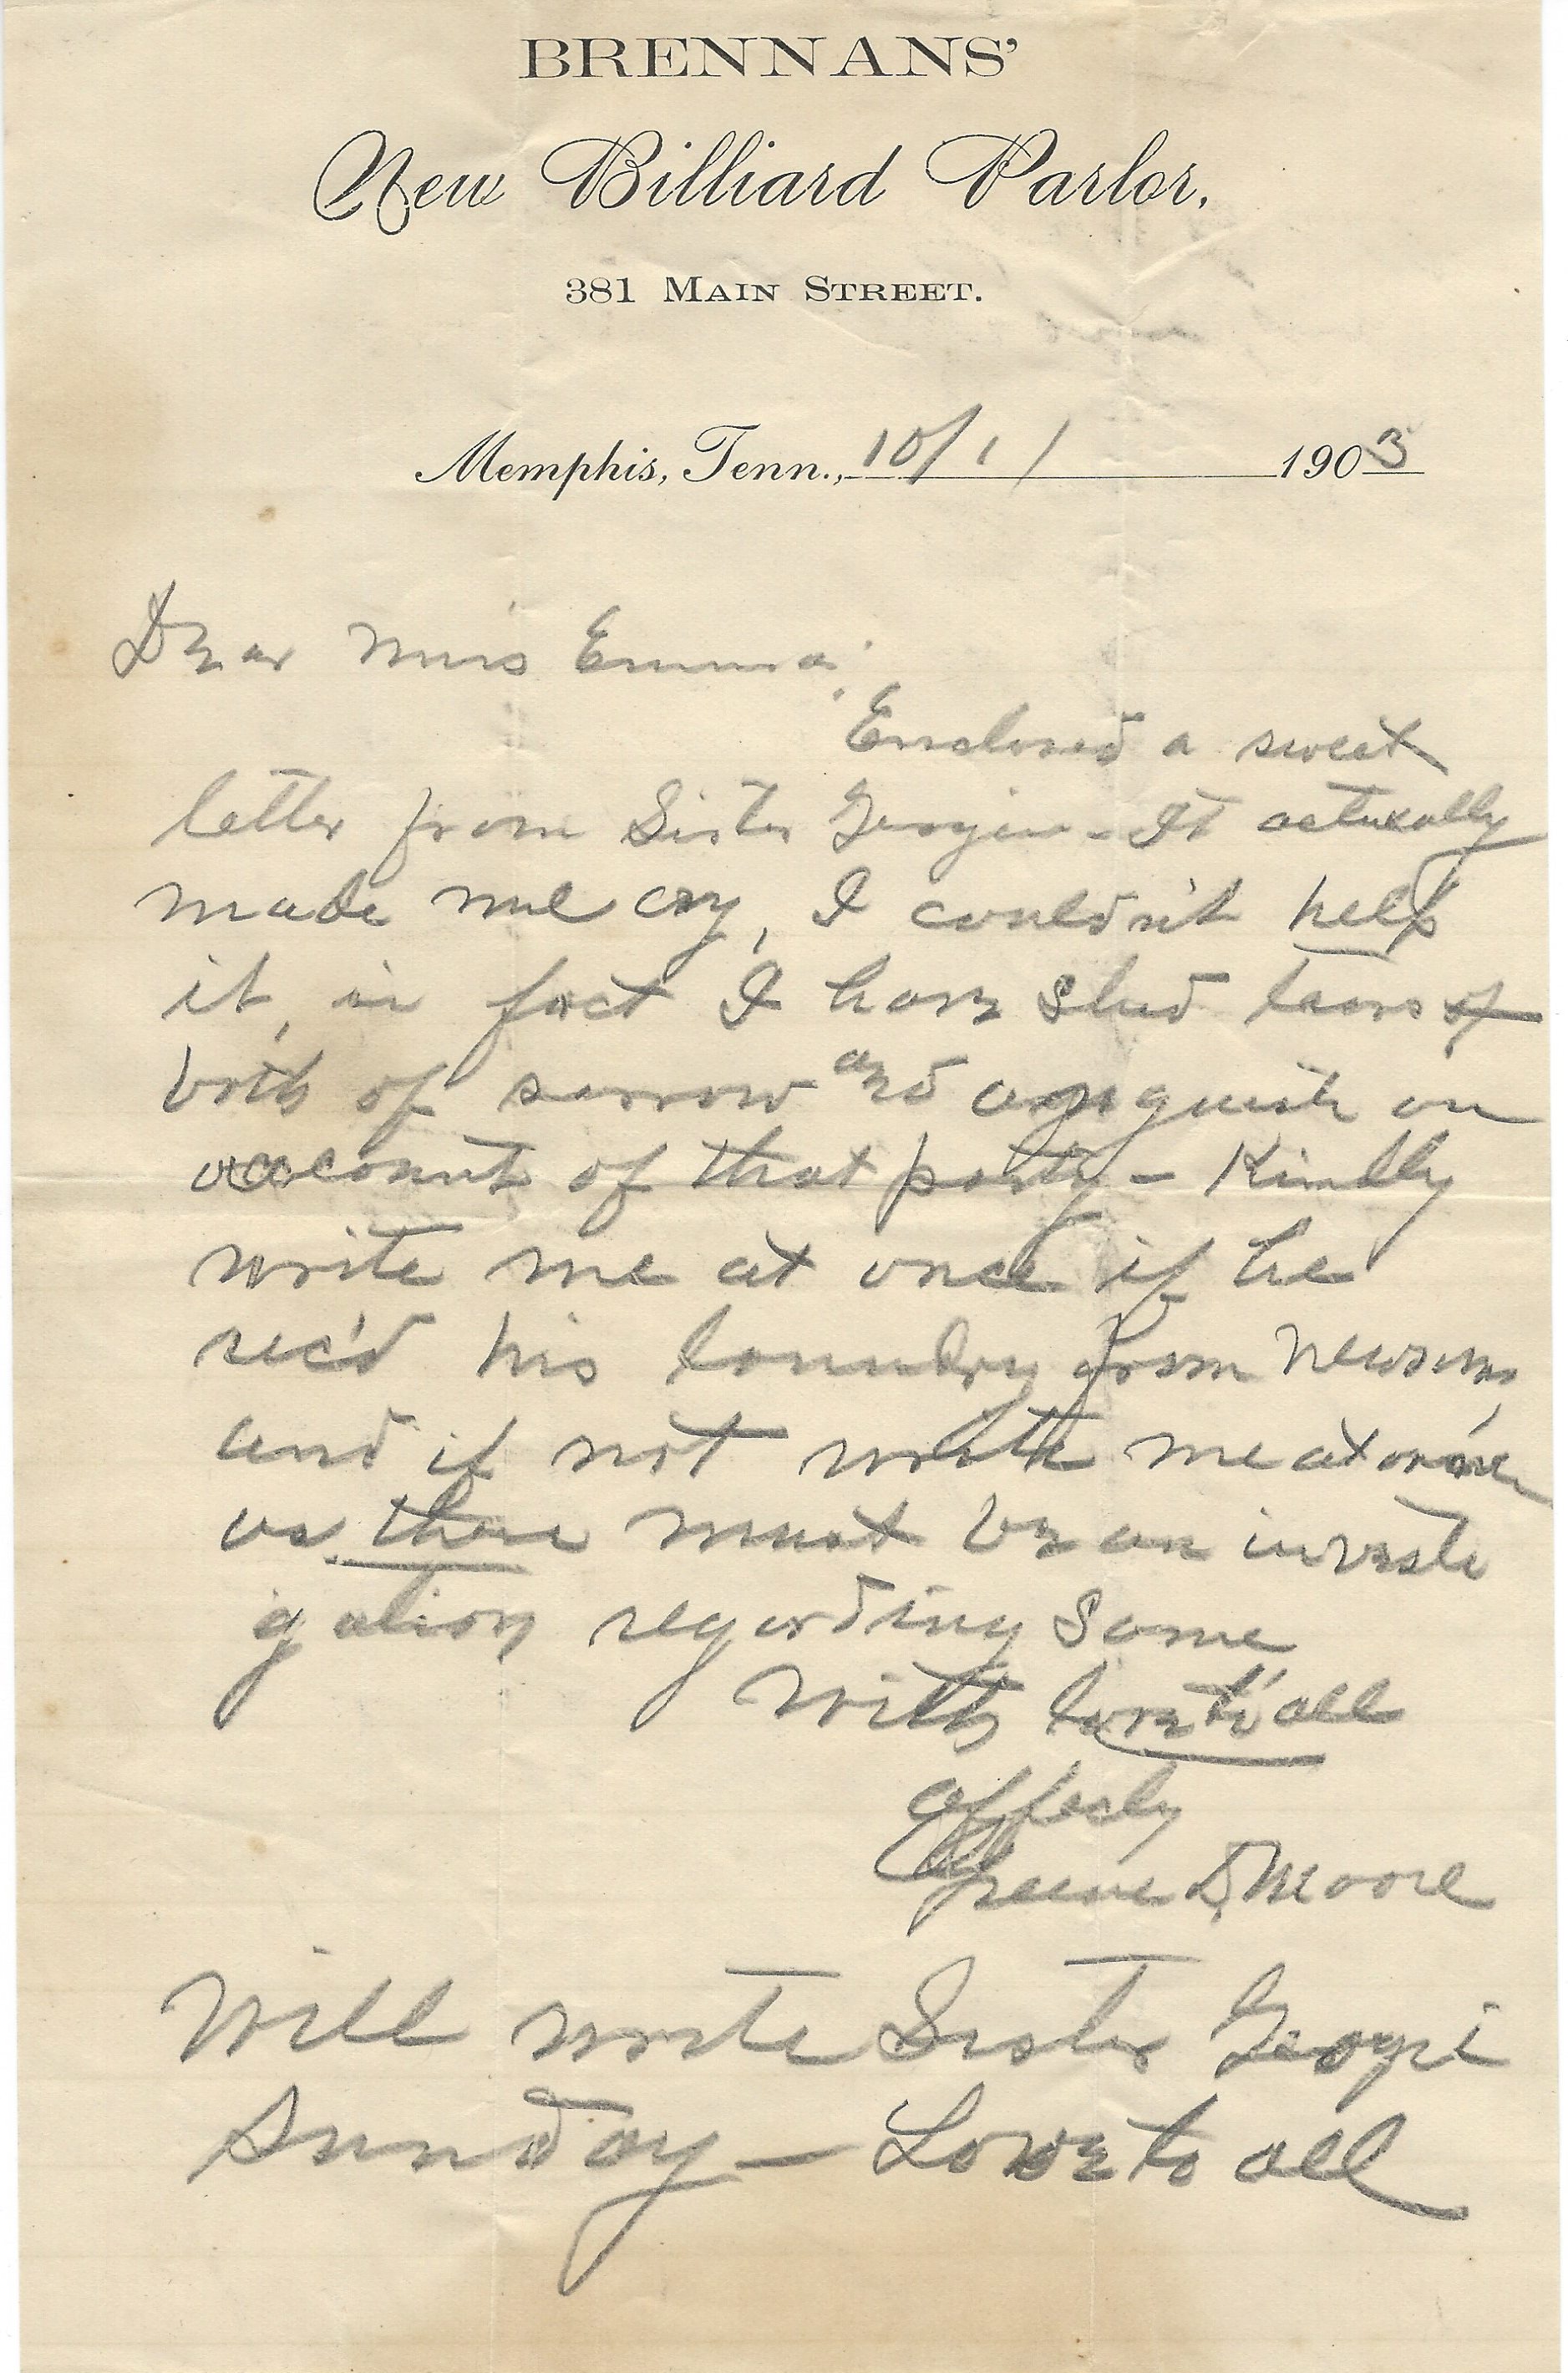 BRENNANS'
New Billiard Parlor,
381 MAIN STREET.
Memphis, Tenn., 10/1/ 1903
Dear Miss Emma:
Enclosed a sweet
letter from Sister - It actually
made me cry, I couldn't help
it, in fact I have shed tears of
both of sorrow and anguish on
account of that party - Kindly
write me at once if he
rec'd his laundry from
and if not write me at once
as there must be an investi
gation regarding same
With love to all
Affecly
Greene D, Moore
Will write Sister Georgi
Sunday - Love to all